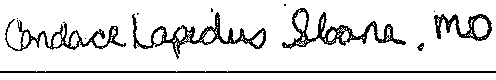 Candace Lapidus Sloane, MD